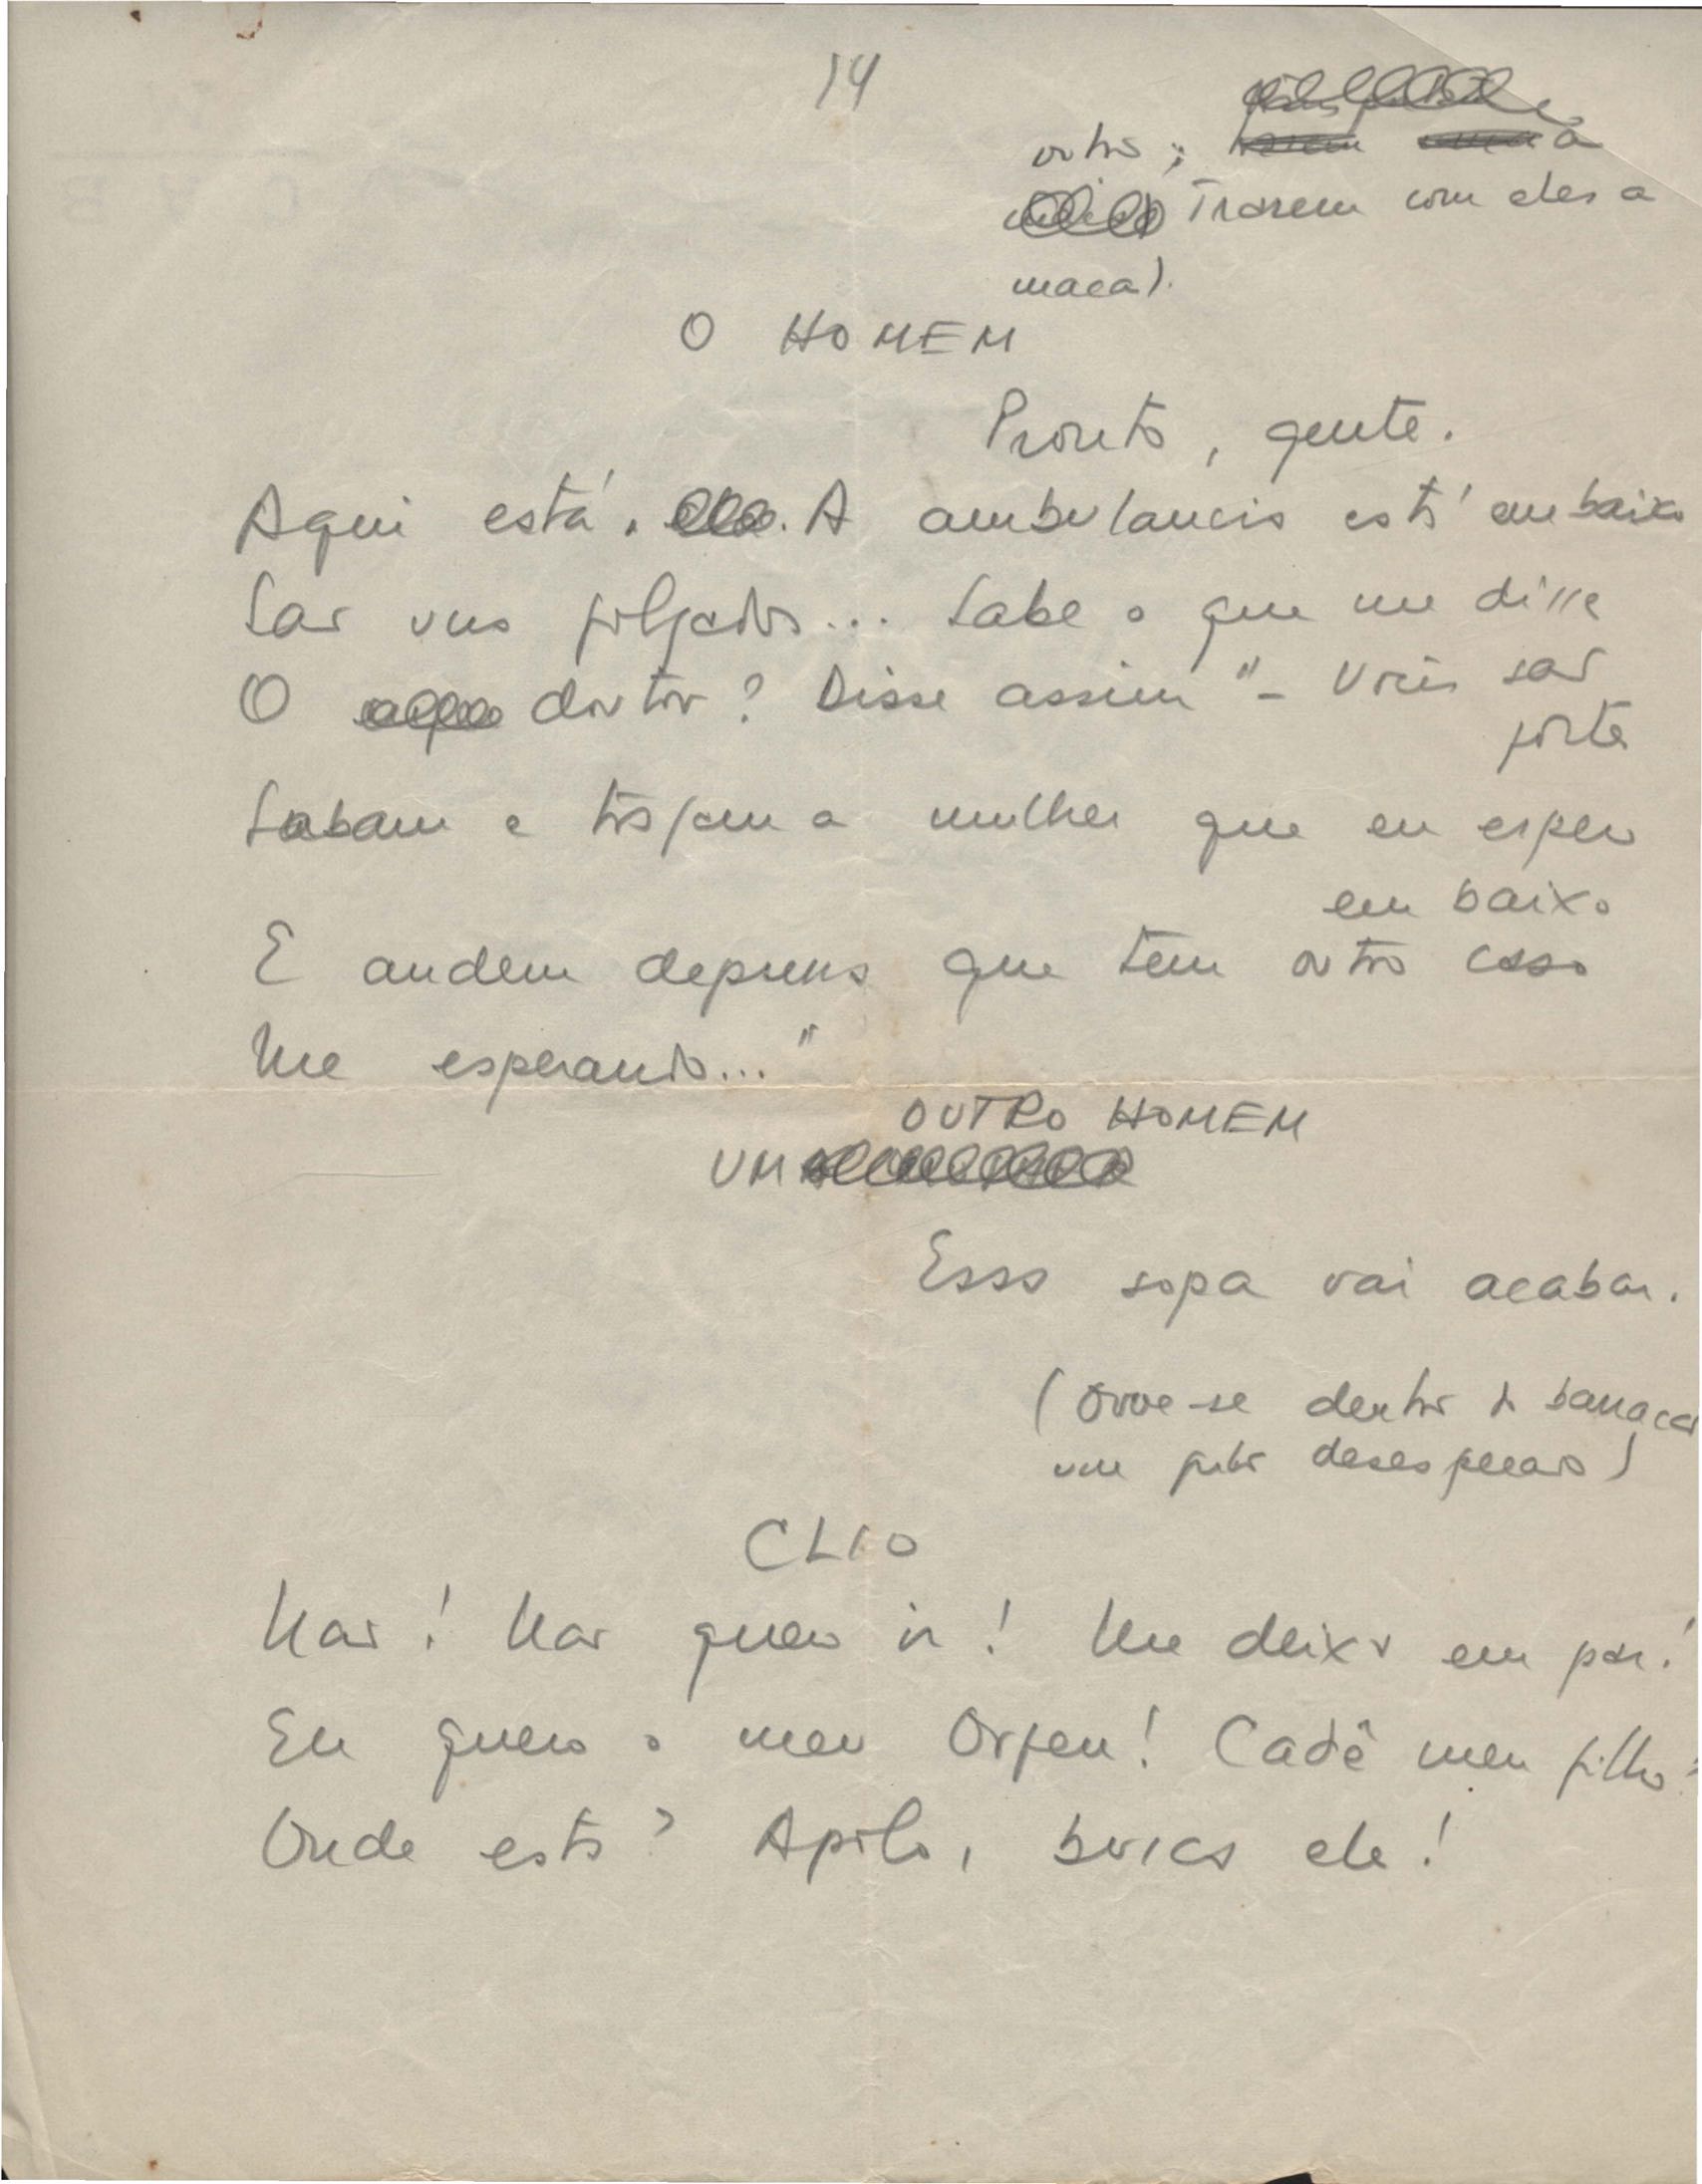 14
outros; a
Trazem com eles a
maca).
O HOMEM
Pronto, gente.
Aqui está. A ambulancia está em baixo
São uns folgados... Sabe o que me disse
O doutor? Disse assim "– Vocês são
forte
Subam e tragam a mulher que eu espero
em baixo
E andem depressa que tem outro caso
Me esperando..."
OUTRO HOMEM
UM
Essa sopa vai acabar.
(Ouve-se dentro do barracão
um grito desesperado)
CLIO
Não! Não quero ir! Me deixa em paz!
Eu quero o meu Orfeu! Cadê meu filho?
Onde está? Apolo, busca ele!